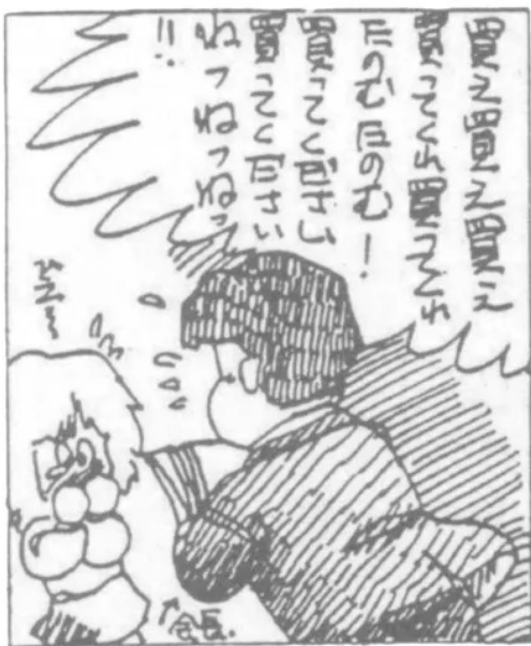 買え買え買え
買ってくれ買ってくれ
たのむたのむ!
買ってください
買ってください
ねっねっねっ
!!
ひえ〜
↑会長.